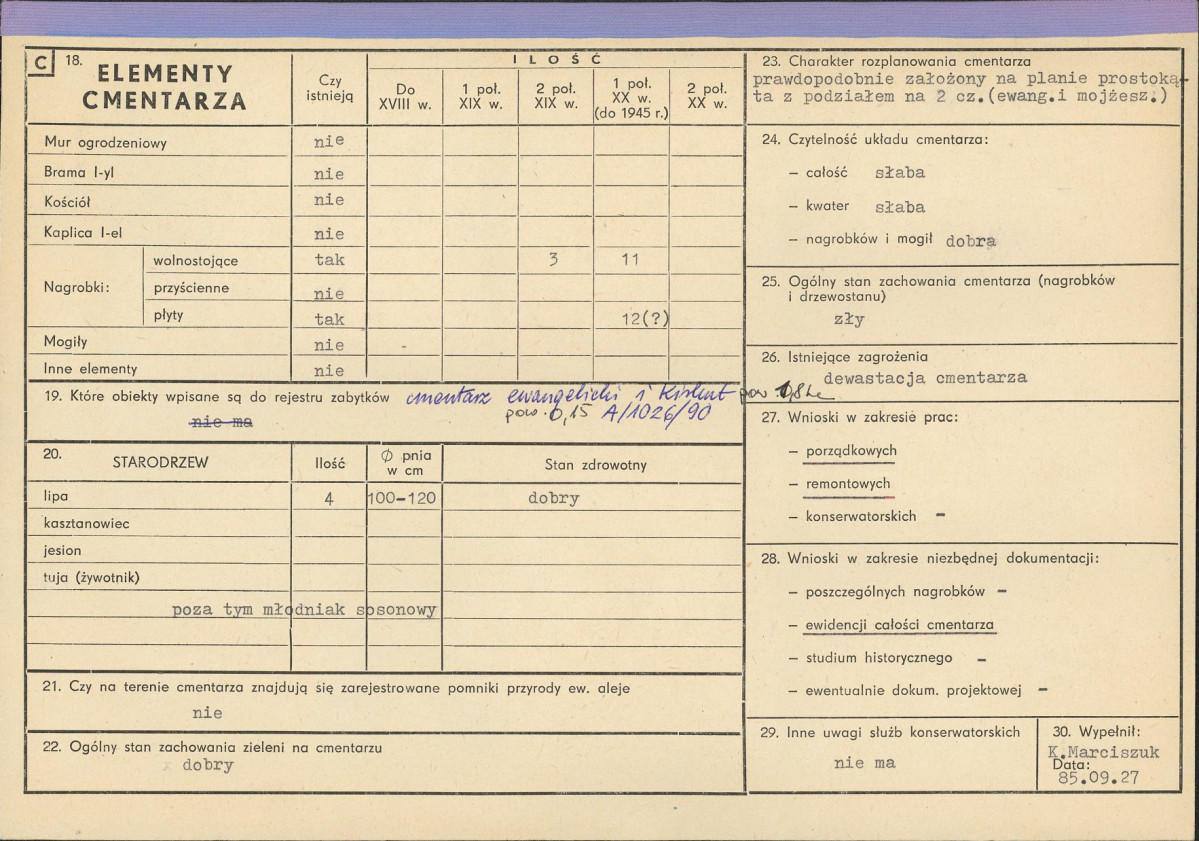 C 18. ELEMENTY CMENTARZA
Czy istnieją
ILOŚĆ
Do XVIII w.
1 poł. XIX w.
2 poł. XIX w.
1 poł. XX w. (do 1945 r.)
2 poł. XX w.
Mur ogrodzeniowy nie
Brama I-yl nie
Kościół nie
Kaplica I-el nie
Nagrobki: wolnostojące tak 3 11
przyścienne nie
płyty tak 12(?)
Mogiły nie -
Inne elementy nie
19. Które obiekty wpisane są do rejestru zabytków cmentarz ewangelicki i Kirkut
pow. 0,15 A/1026/90
nie ma
20. STARODRZEW Ilość Ø pnia w cm Stan zdrowotny
lipa 4 100-120 dobry
kasztanowiec
jesion
tuja (żywotnik)
poza tym młodniak sosonowy
21. Czy na terenie cmentarza znajdują się zarejestrowane pomniki przyrody ew. aleje
nie
22. Ogólny stan zachowania zieleni na cmentarzu
dobry
23. Charakter rozplanowania cmentarza
prawdopodobnie założony na planie prostoką-
ta z podziałem na 2 cz.(ewang.i mojżesz.)
24. Czytelność układu cmentarza:
– całość słaba
– kwater słaba
– nagrobków i mogił dobra
25. Ogólny stan zachowania cmentarza (nagrobków
i drzewostanu)
zły
26. Istniejące zagrożenia
dewastacja cmentarza
27. Wnioski w zakresie prac:
– porządkowych
– remontowych
– konserwatorskich -
28. Wnioski w zakresie niezbędnej dokumentacji:
– poszczególnych nagrobków -
– ewidencji całości cmentarza
– studium historycznego -
– ewentualnie dokum. projektowej -
29. Inne uwagi służb konserwatorskich
nie ma
30. Wypełnił:
K.Marciszuk
Data:
85.09.27